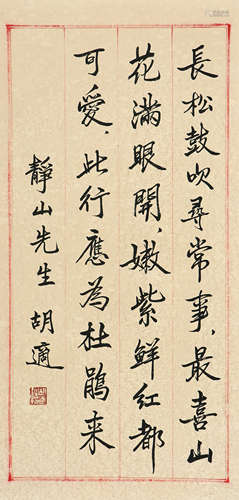 長松鼓吹尋常事,最喜山
花滿眼開,嫩紫鮮紅都
可愛,此行應為杜鵑来
靜山先生 胡適